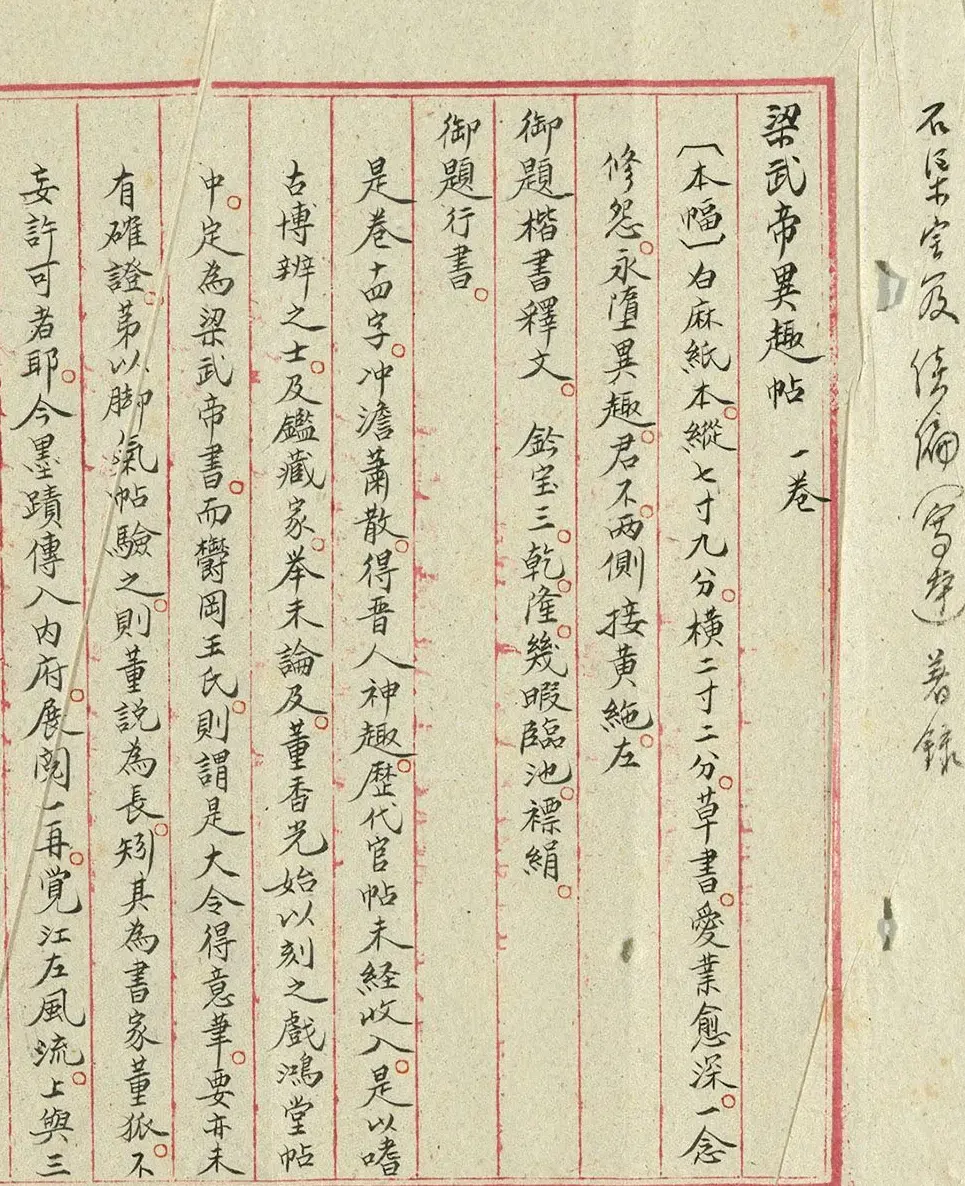 石渠宝笈續編(寧壽)著錄
梁武帝異趣帖 一卷
〔本幅〕白麻紙本。縱七寸九分。橫二寸二分。草書。愛業愈深。一念
修怨。永墮異趣。君不。两側接黄絁。左
御題楷書釋文。 鈐宝三。乾。隆。幾暇臨池。褾絹。
御題行書。
是卷十四字。冲澹蕭散。得晋人神趣。歷代官帖未経收入。是以嗜
古博辨之士。及鑑藏家。举未論及。董香光始以刻之戲鴻堂帖
中。定為梁武帝書。而欝岡王氏。則謂是大令得意筆。要亦未
有確證。苐以脚氣帖驗之。則董説為長。矧其為書家董狐。不
妄許可者耶。今墨蹟傳入内府。展閲一再。覚江左風流。上與三